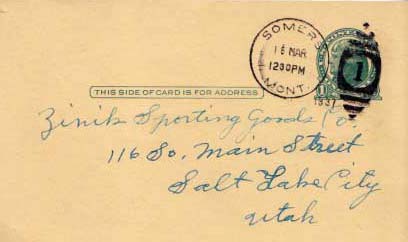 SOMER
16 MAR
1230PM
MONT.
1937
1
THIS SIDE OF CARD IS FOR ADDRESS
Zinik Sporting Goods Co.
116 So. Main Street
Salt Lake City
Utah